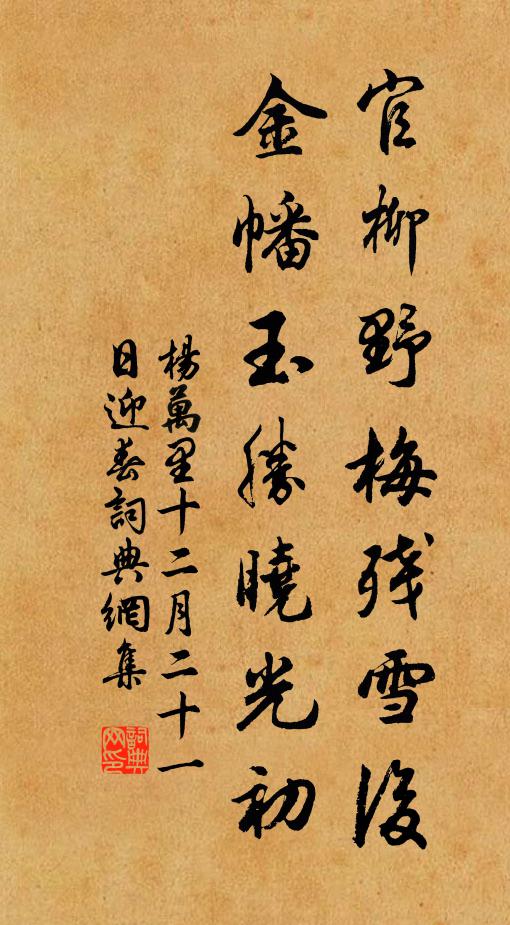 官柳野梅残雪後
金幡玉勝曉光初
楊萬里十二月二十一
日迎春詞典網集
詞典網印